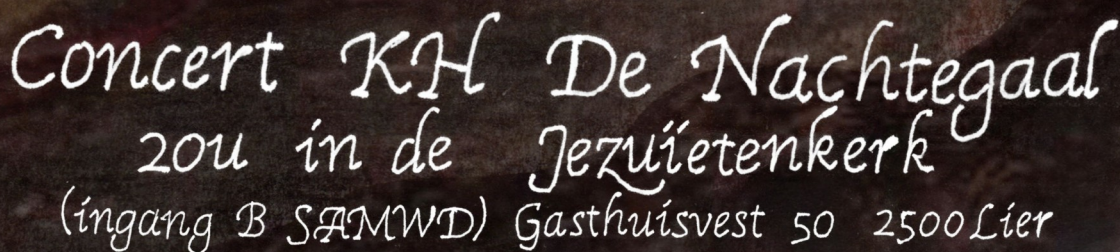 Concert KH De Nachtegaal
20u in de Jezuïetenkerk
(ingang B SAMWD) Gasthuisvest 50 2500 Lier